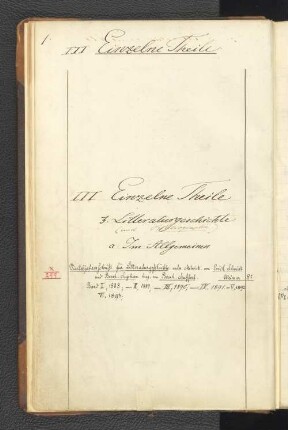 1
III Einzelne Theile
III Einzelne Theile
3. Litteraturgeschichte
a. Im Allgemeinen
Vierteljahrschrift für Litteraturgeschichte unter Mitwirk. von Erich Schmidt
und Bernh. Suphan hrsg. von Bernh. Seuffert. Weimar 8°
Band I, 1888, — II, 1889, — III, 1890, — IV, 1891. — V, 1892
VI, 1893.